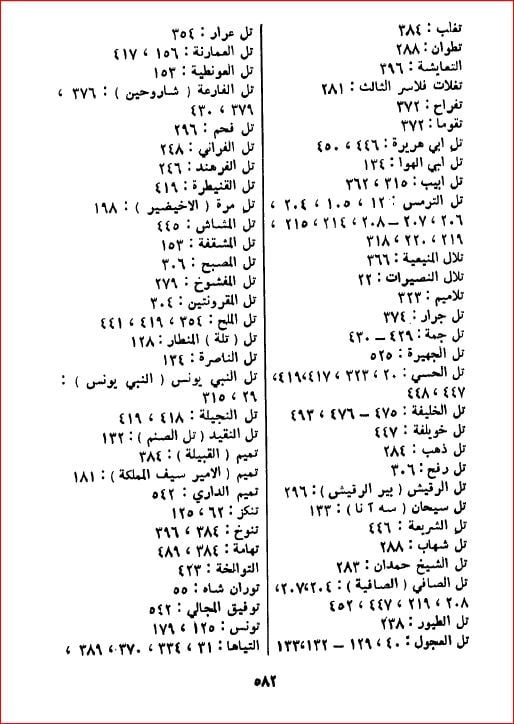 تغلب : ٣٨٤
تطوان : ٢٨٨
التعايشة : ٣٩٦
تغلات فلاسر الثالث : ٢٨١
تفراح : ٣٧٢
تقوما : ٣٧٢
تل ابي هريرة : ٤٤٦ ، ٤٥٠
تل ابي الهوا : ١٣٤
تل ابيب : ٣١٥ ، ٣٦٢
تل الترمس : ١٢ ، ١٠٥ ، ٢٠٤ ،
٢٠٦ ، ٢٠٧ – ٢٠٨ ، ٢١٤ ، ٢١٥ ،
٢١٩ ، ٢٢٠ ، ٣١٨
تلال المنيعية : ٣٦٦
تلال النصيرات : ٢٢
تلاميم : ٣٢٣
تل جرار : ٣٧٤
تل جمة : ٤٢٩ – ٤٣٠
تل الجهيرة : ٥٢٥
تل الحسي : ٢٠ ، ٣٢٣ ، ٤١٧ ، ٤١٩ ،
٤٤٧ ، ٤٤٨
تل الخليفة : ٤٧٥ – ٤٧٦ ، ٤٩٣
تل خويلفة : ٤٤٧
تل ذهب : ٢٨٤
تل رفح : ٣٠٦
تل الرقيش ( بير الرقيش ) : ٢٩٦
تل سيحان ( سه آنا ) : ١٣٣
تل الشريعة : ٤٤٦
تل شهاب : ٢٨٨
تل الشيخ حمدان : ٢٨٣
تل الصافي ( الصافية ) : ٢٠٤ ، ٢٠٧ ،
٢٠٨ ، ٢١٩ ، ٤٤٧ ، ٤٥٢
تل الطيور : ٢٣٨
تل العجول : ٤٠ ، ١٢٩ – ١٣٢ ، ١٣٣
تل عرار : ٣٥٤
تل العمارنة : ١٥٦ ، ٤١٧
تل العونطية : ١٥٣
تل الفارعة ( شاروحين ) : ٣٧٦ ،
٣٧٩ ، ٤٣٠
تل فحم : ٢٩٦
تل الفراني : ٢٤٨
تل الفرهند : ٢٤٦
تل القنيطرة : ٤١٩
تل مرة ( الاخيضير ) : ١٩٨
تل المشاش : ٤٤٥
تل المشقفة : ١٥٣
تل المصبح : ٣٠٦
تل المفشوخ : ٢٧٩
تل المقرونتين : ٣٠٤
تل الملح : ٣٥٤ ، ٤١٩ ، ٤٤١
تل ( تلة ) المنطار : ١٢٨
تل الناصرة : ١٣٤
تل النبي يونس ( النبي يونس ) :
٢٩ ، ٣١٥
تل النجيلة : ٤١٨ ، ٤١٩
تل النقيد ( تل الصنم ) : ١٣٢
تميم ( القبيلة ) : ٣٨٤
تميم ( الامير سيف المملكة ) : ١٨١
تميم الداري : ٥٤٢
تنكز : ٦٢ ، ١٢٥
تنوخ : ٣٨٤ ، ٣٩٦
تهامة : ٣٨٤ ، ٤٨٩
التوالخة : ٤٢٣
توران شاه : ٥٥
توفيق المجالي : ٥٤٢
تونس : ١٢٥ ، ١٧٩
التياها : ٣١ ، ٣٣٤ ، ٣٧٠ ، ٣٨٩ ،
٥٨٢